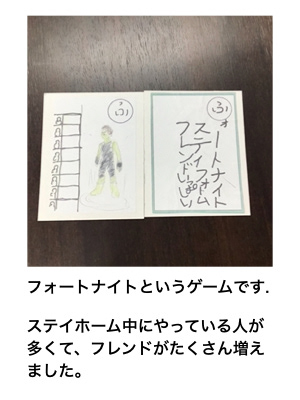 ふ
ふ
ォートナイト
ステイフォーム
フレンドいっぱい
フォートナイトというゲームです.
ステイホーム中にやっている人が
多くて、フレンドがたくさん増え
ました。